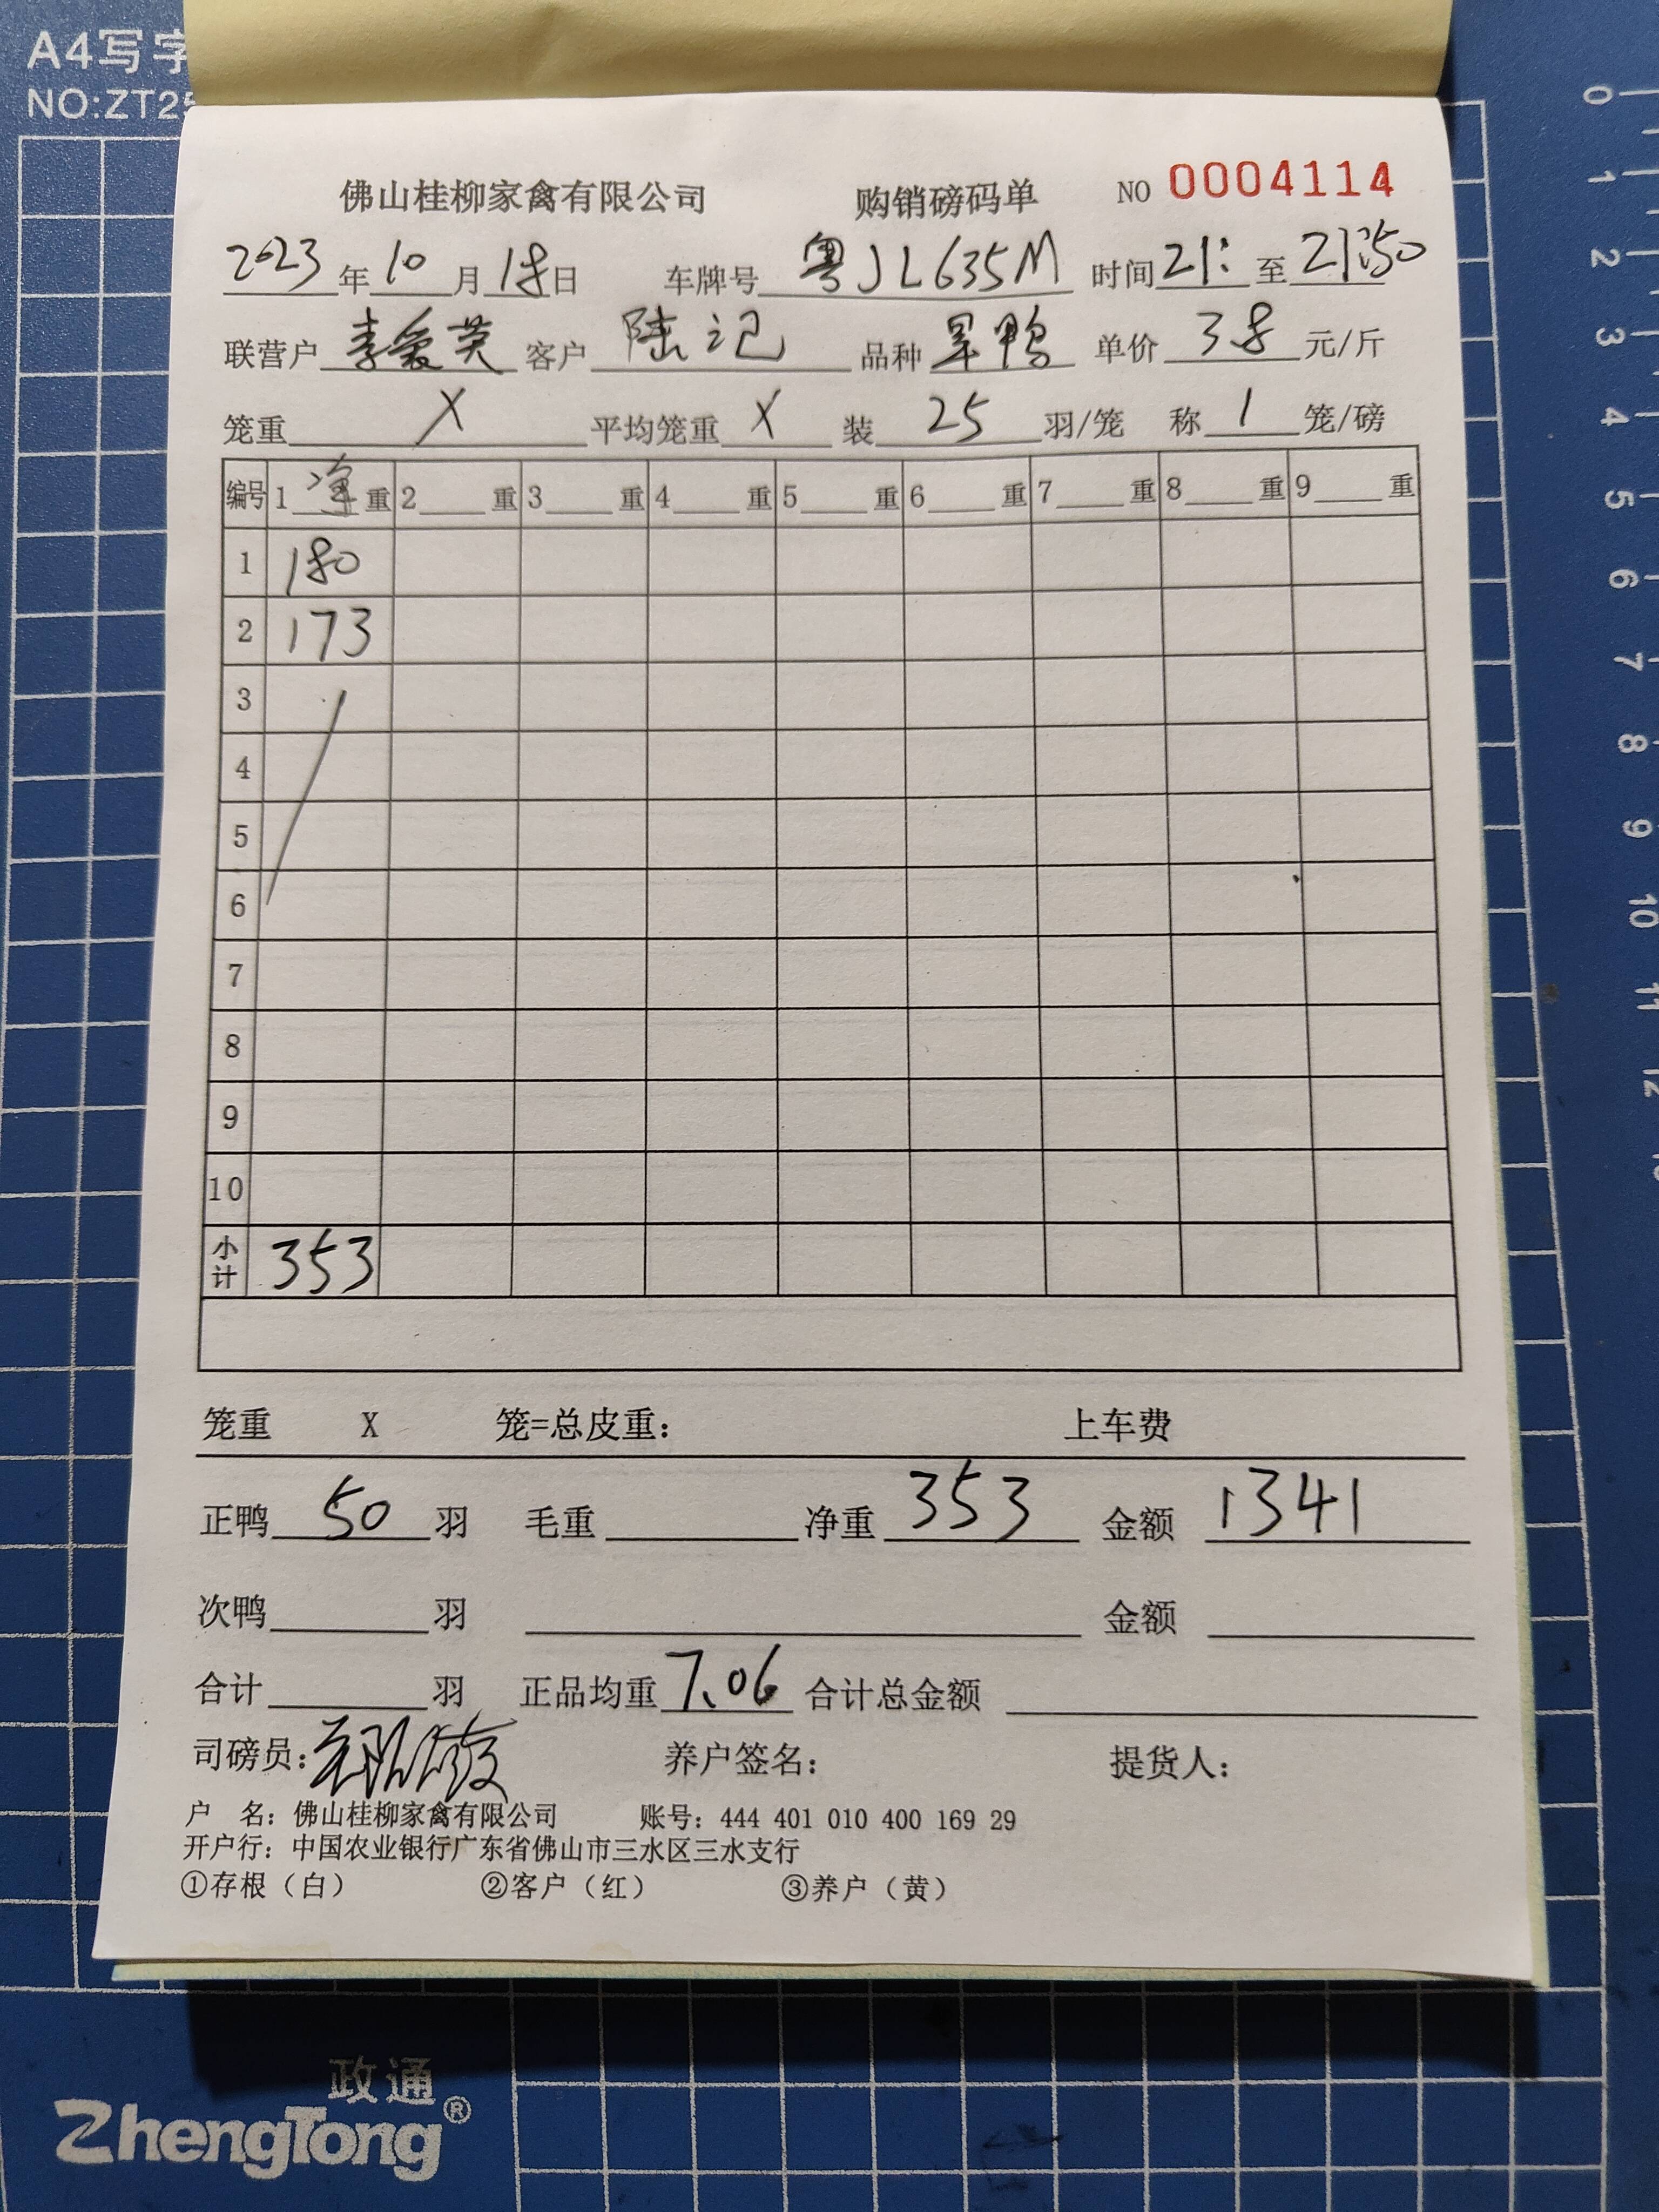 A4写字
NO:ZT25
佛山桂柳家禽有限公司 购销磅码单 NO 0004114
2023年10月18日 车牌号 粤JL635M 时间21: 至 21:50
联营户 李爱英 客户 陆记 品种 旱鸭 单价 38 元/斤
笼重 X 平均笼重 X 装 25 羽/笼 称 1 笼/磅
编号 1 净 重 2 重 3 重 4 重 5 重 6 重 7 重 8 重 9 重
1 180
2 173
3
4
5
6
7
8
9
10
小计 353
笼重 X 笼=总皮重: 上车费
正鸭 50 羽 毛重 净重 353 金额 1341
次鸭 羽 金额
合计 羽 正品均重 7.06 合计总金额
司磅员: 养户签名: 提货人:
户 名: 佛山桂柳家禽有限公司 账号: 444 401 010 400 169 29
开户行: 中国农业银行广东省佛山市三水区三水支行
①存根（白） ②客户（红） ③养户（黄）
0
1
2
3
4
5
6
7
8
9
10
11
12
政通
ZhengTong®